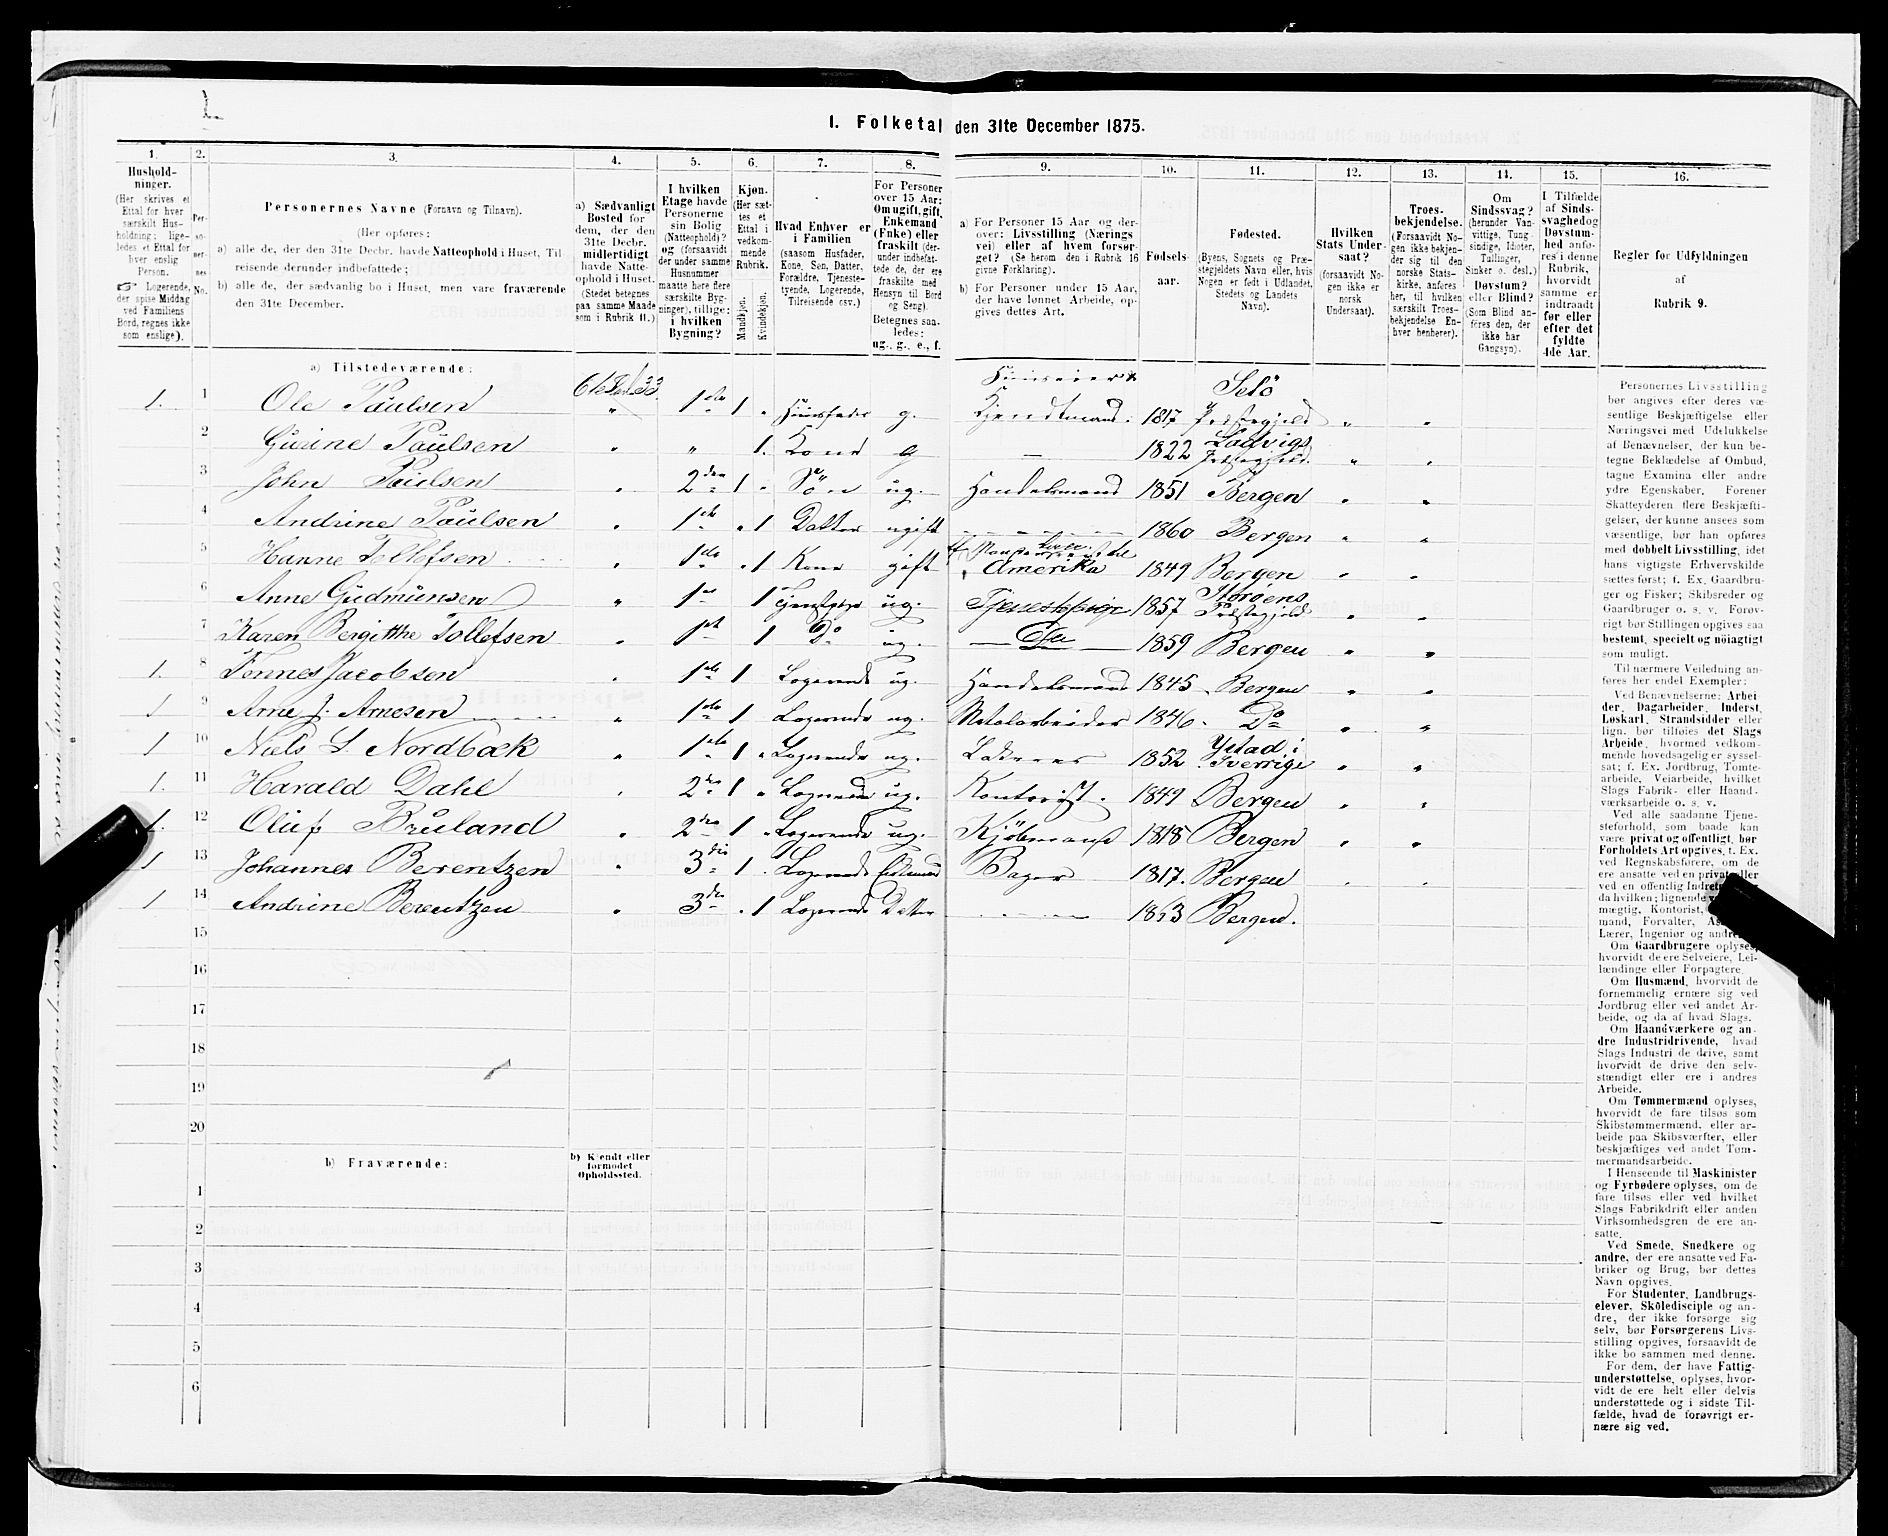 1. Folketal den 31te December 1875.
1. 2. 3. 4. 5. 6. 7. 8. 9. 10. 11. 12. 13. 14. 15. 16.
Hushold-
ninger.
(Her skrives et
Ettal for hver
særskilt Hus-
holdning; lige-
ledes et Ettal for
hver enslig
Person.
☞ Logerende,
der spise Middag
ved Familiens
Bord, regnes ikke
som enslige).
Per-
so-
ner-
nes
No.
Personernes Navne (Fornavn og Tilnavn).
(Her opføres:
a) alle de, der den 31te Decbr. havde Natteophold i Huset, Til-
reisende derunder indbefattede;
b) alle de, der sædvanlig bo i Huset, men vare fraværende
den 31te December.
a) Sædvanligt
Bosted for
dem, der den
31te Decbr.
midlertidigt
havde Natte-
ophold i Huset.
(Stedet betegnes
paa samme Maade
som i Rubrik 11.)
I hvilken
Etage havde
Personerne
sin Bolig
(Natteophold)?
og (forsaavidt
der under samme
Husnummer
maatte høre flere
særskilte Byg-
ninger), tillige:
i hvilken
Bygning?
Kjøn.
(Her sæt-
tes et
Ettal i
vedkom-
mende
Rubrik.
Mandkjøn.
Kvindekjøn.
Hvad Enhver er
i Familien
(saasom Husfader,
Kone, Søn, Datter,
Forældre, Tjeneste-
tyende, Logerende,
Tilreisende osv.)
For Personer
over 15 Aar:
Om ugift, gift,
Enkemand
(Enke) eller
fraskilt (der-
under indbefat-
tede de, der ere
fraskilte med
Hensyn til Bord
og Seng).
Betegnes saa-
ledes:
ug., g., e., f.
a) For Personer 15 Aar og der-
over: Livsstilling (Nærings
vei) eller af hvem forsør-
get? (Se herom den i Rubrik 16
givne Forklaring).
b) For Personer under 15 Aar,
der have lønnet Arbeide, op-
gives dettes Art.
Fødsels-
aar.
Fødested.
(Byens, Sognets og Præ-
stegjeldets Navn eller, hvis
Nogen er født i Udlandet,
Stedets og Landets
Navn).
Hvilken
Stats Under-
saat?
(forsaavidt No-
gen ikke er
norsk
Undersaat).
Troes-
bekjendelse.
(Forsaavidt No-
gen ikke bekjen-
der sig til den
norske Stats-
kirke, anføres
her, til hvilken
særskilt Troes-
bekjendelse En-
hver henhører).
Om
Sindssvag?
(herunder Van-
vittige, Tung-
sindige, Idioter,
Tullinger,
Sinker o. desl.)
Døvstum?
eller Blind?
(Som Blind an-
føres den, der
ikke har
Gangsyn).
I Tilfælde
af Sinds-
svaghed og
Døvstum-
hed anfø-
res i denne
Rubrik,
hvorvidt
samme er
indtraadt
før eller
efter det
fyldte
4de Aar.
Regler for Udfyldningen
af
Rubrik 9.
a) Tilstedeværende:
1. 1 Ole Paulsen " 1ste 1 " Huusfader g. Huuseier Kjendtmand. 1817 Selö Præstegjeld " "
2 Gurine Paulsen " " 1. Kone g — 1822 Ladvigs Præstegjeld. " "
3 John Paulsen " 2den 1 " Sön ug. Handelsmand 1851 Bergen " "
4 Andrine Paulsen " 1ste " 1 Datter ugift — 1860 Bergen " "
5 Hanne Tollefsen " 1ste " 1 Kone gift Amerika 1849 Bergen " "
6 Anne Gudmunsen " 1ste 1 Tjenstpige ug. Tjenestepige 1857 Störöens Præstegjeld " "
7 Karen Bergitthe Tollefsen " 1ste 1 Do ug. — Do — 1859 Bergen " "
1. 8 Tönnes Jacobsen " 1ste 1 Logerende ug. Handelsmand 1845 Bergen " "
1 9 Arne J. Arnesen " 1ste 1 Logerende ug. Metalarbeider 1846. Do " "
1 10 Niels L. Nordbæk " 1ste 1 " Logerende ug. 1852 Ystad i Sverrige " "
1. 11 Harald Dahl " 2den 1 " Logerende ug. Kontorist. 1849 Bergen " "
1. 12 Oluf Bruland " 2den 1 " Logerende ug. Kjöbmand 1818 Bergen " "
1 13 Johannes Berentzen " 3die 1 . Logerende Enkemand Bager 1817. Bergen " "
1 14 Andrine Berentzen " 3die " 1 Logerende Datter — 1863 Bergen.
15
16
17
18
19
20
b) Fraværende:
b) Kjendt eller
formodet
Opholdssted.
1
2
3
4
5
6
Personernes Livsstilling
bør angives efter deres væ-
sentlige Beskjæftigelse eller
Næringsvei med Udelukkelse
af Benævnelser, der kun be-
tegne Beklædelse af Ombud,
tagne Examina eller andre
ydre Egenskaber. Forener
Skatteyderen flere Beskjæfti-
gelser, der kunne ansees som
væsentlige, bør han opføres
med dobbelt Livsstilling, idet
hans vigtigste Erhvervskilde
sættes først; f. Ex. Gaardbru-
ger og Fisker; Skibsreder og
Gaardbruger o. s. v. Forøv-
rigt bør Stillingen opgives saa
bestemt, specielt og nöiagtigt
som muligt.
Til nærmere Veiledning an-
føres her endel Exempler:
Ved Benævnelserne: Arbei
der, Dagarbeider, Inderst,
Løskarl, Strandsidder eller
lign. bør tilføies det Slags
Arbeide, hvormed vedkom-
mende hovedsagelig er syssel-
sat; f. Ex. Jordbrug, Tomte-
arbeide, Veiarbeide, hvilket
Slags Fabrik- eller Haand-
værksarbeide o. s. v.
Ved alle saadanne Tjene-
steforhold, som baade kan
være privat og offentligt, bør
Forholdets Art opgives, t. Ex.
ved Regnskabsførere, om de
ere ansatte ved en privat eller
ved en offentlig
da hvilken; lignende
mægtig, Kontorist,
mand, Forvalter,
Lærer, Ingeniør og
Om Gaardbrugere oplyses,
hvorvidt de ere Selveiere, Lei-
lændinge eller Forpagtere.
Om Husmænd, hvorvidt de
fornemmelig ernære sig ved
Jordbrug eller ved andet Ar-
beide, og da af hvad Slags.
Om Haandværkere og an-
dre Industridrivende, hvad
Slags Industri de drive, samt
hvorvidt de drive den selv-
stændigt eller ere i andres
Arbeide.
Om Tømmermænd oplyses,
hvorvidt de fare tilsøs som
Skibstømmermænd, eller ar-
beide paa Skibsværfter, eller
beskjæftiges ved andet Tøm-
mermandsarbeide.
I Henseende til Maskinister
og Fyrbødere oplyses, om de
fare tilsøs eller ved hvilket
Slags Fabrikdrift eller anden
Virksomhedsgren de ere an-
satte.
Ved Smede, Snedkere og
andre, der ere ansatte ved Fa-
briker og Brug, bør dettes
Navn opgives.
For Studenter, Landbrugs-
elever, Skôledisciple og an-
dre, der ikke forsørge sig
selv, bør Forsørgerens Livs-
stilling opgives, forsaavidt de
ikke bo sammen med denne.
For dem, der have Fattig-
understøttelse, oplyses, hvor-
vidt de ere helt eller delvis
understøttede og i sidste Til-
fælde, hvad de forøvrigt er-
nære sig ved.